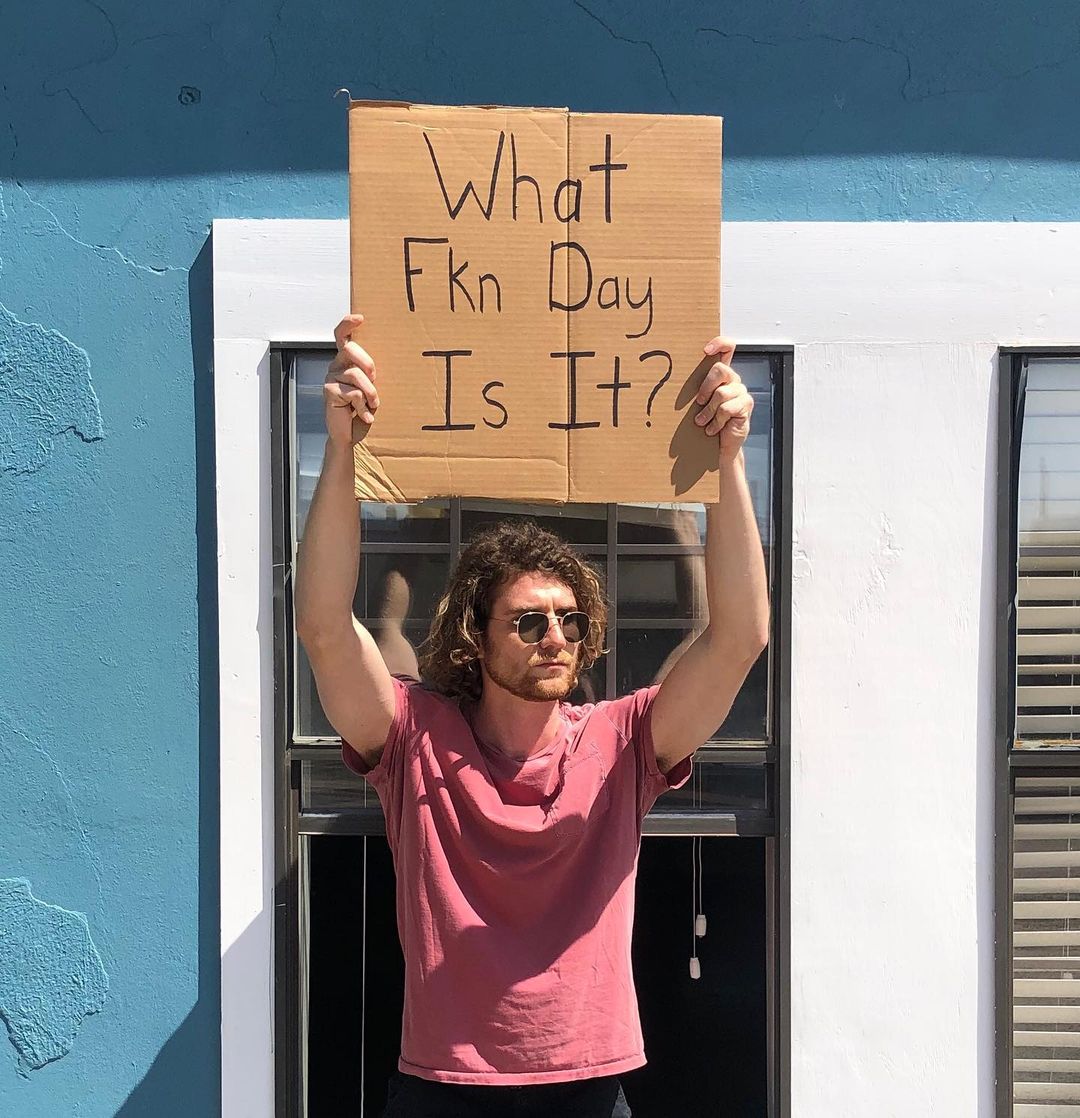 What
Fkn Day
Is It?